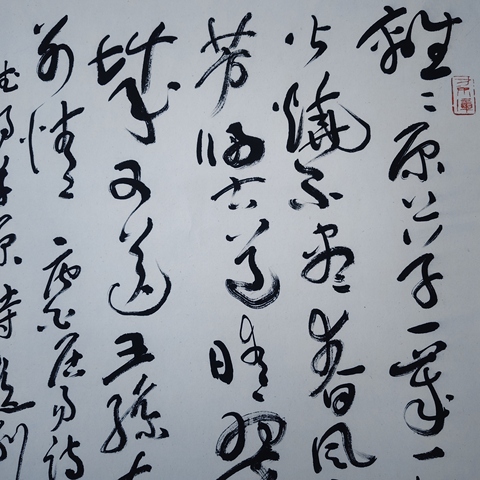 離離原上草一歲一
火燒不盡春風
芳侵古道晴翠
城又送王孫去
別情 唐白居易詩
賦得 原 送別